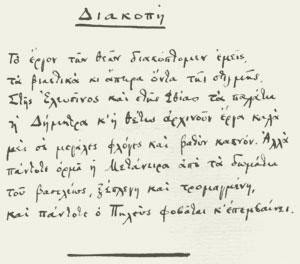 Διακοπή
Τὸ ἔργον τῶν θεῶν διακόπτομεν ἐμεῖς,
τὰ βιαστικὰ κι ἄπειρα ὄντα τῆς στιγμῆς.
Στῆς Ἐλευσῖνος καὶ στῆς Φθίας τὰ παλάτια
ἡ Δήμητρα κ' ἡ Θέτις ἀρχινοῦν ἔργα καλὰ
μὲς σὲ μεγάλες φλόγες καὶ βαθὺν καπνόν. Ἀλλὰ
πάντοτε ὁρμᾶ ἡ Μετάνειρα ἀπὸ τὰ δωμάτια
τοῦ βασιλέως, ξέπλεγη καὶ τρομαγμένη,
καὶ πάντοτε ὁ Πηλεὺς φοβᾶται κ' ἐπεμβαίνει.